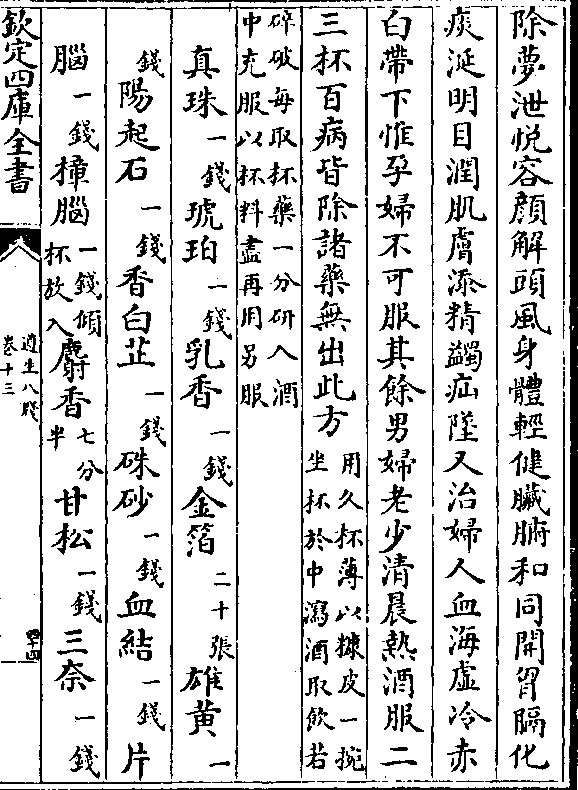 除夢泄悦容顔解頭風身體輕健臟腑和同開胷膈化
痰涎明目潤肌膚添精蠲疝墜又治婦人血海虚冷赤
白帶下惟孕婦不可服其餘男婦老少清晨熱酒服二
三杯百病皆除諸藥無出此方
用久杯薄以糠皮一椀
坐杯於中瀉酒取飲若
碎破毎取杯藥一分研入酒
中充服以杯料盡再用另服
真珠一錢琥珀一錢乳香一錢金箔二十張雄黄一
錢陽起石一錢香白芷一錢硃砂一錢血結一錢片
腦一錢樟腦一錢傾杯放入麝香七分半甘松一錢三奈一錢
欽定四庫全書
遵生八牋
卷十三
四十四